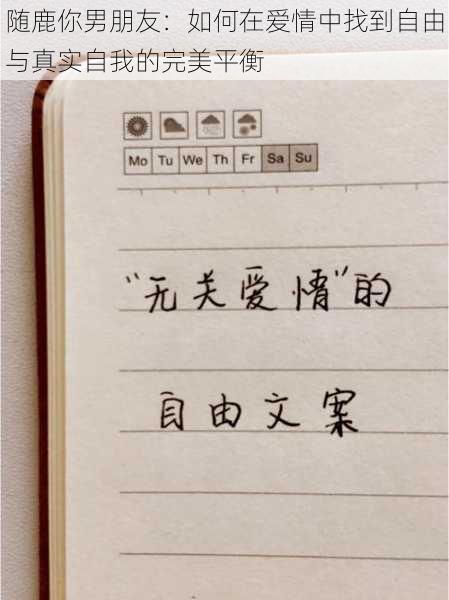 随鹿你男朋友：如何在爱情中找到自由
与真实自我的完美平衡
Mo Tu We Th Fr Sa Su
“无关爱情”的
自由文案